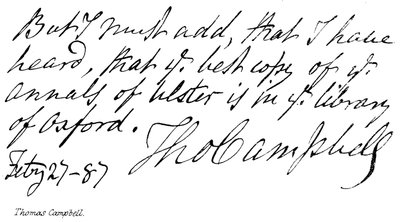 But I must add, that I have
heard, that yͤ. best copy of yͤ.
annals, of Ulster is in yͤ. library
of Oxford.
Tho Campbell
Febry 27-87
Thomas Campbell.